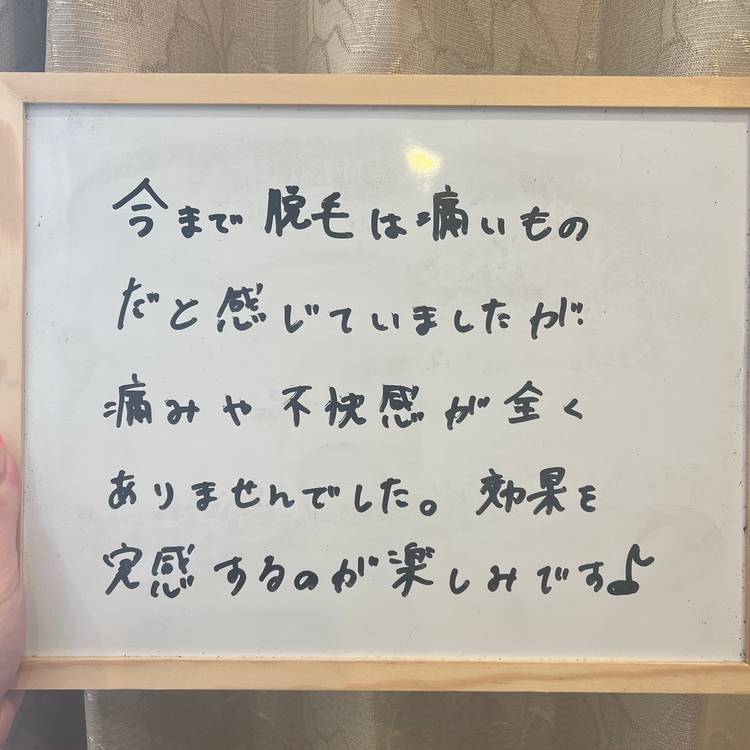 今まで脱毛は痛いもの
だと感じていましたが
痛みや不快感が全く
ありませんでした。効果を
実感するのが楽しみです♪